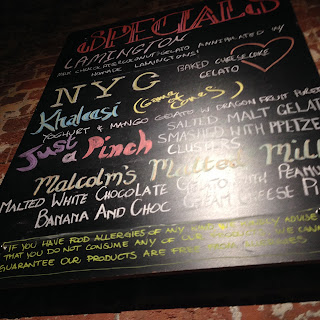 SPECIALS
LAMINGTON
MILK CHOCOLATE & COCONUT GELATO ANNIHILATED W/
HOMADE LAMINGTONS!
NYG BAKED CHEESECAKE
GELATO
Khaleesi (Game of Thrones)
YOGHURT & MANGO GELATO W. DRAGON FRUIT PUREE
Just a Pinch SALTED MALT GELATO
SMASHED WITH PRETZEL
CLUSTERS
Malcolm's Malted Milk
MALTED WHITE CHOCOLATE GELATO WITH PEANUT
BANANA AND CHOC CREAM CHEESE PI
*IF YOU HAVE FOOD ALLERGIES OF ANY KIND WE ADVISE
THAT YOU DO NOT CONSUME ANY OF OUR PRODUCTS. WE CANNOT
GUARANTEE OUR PRODUCTS ARE FREE FROM ALLERGENS